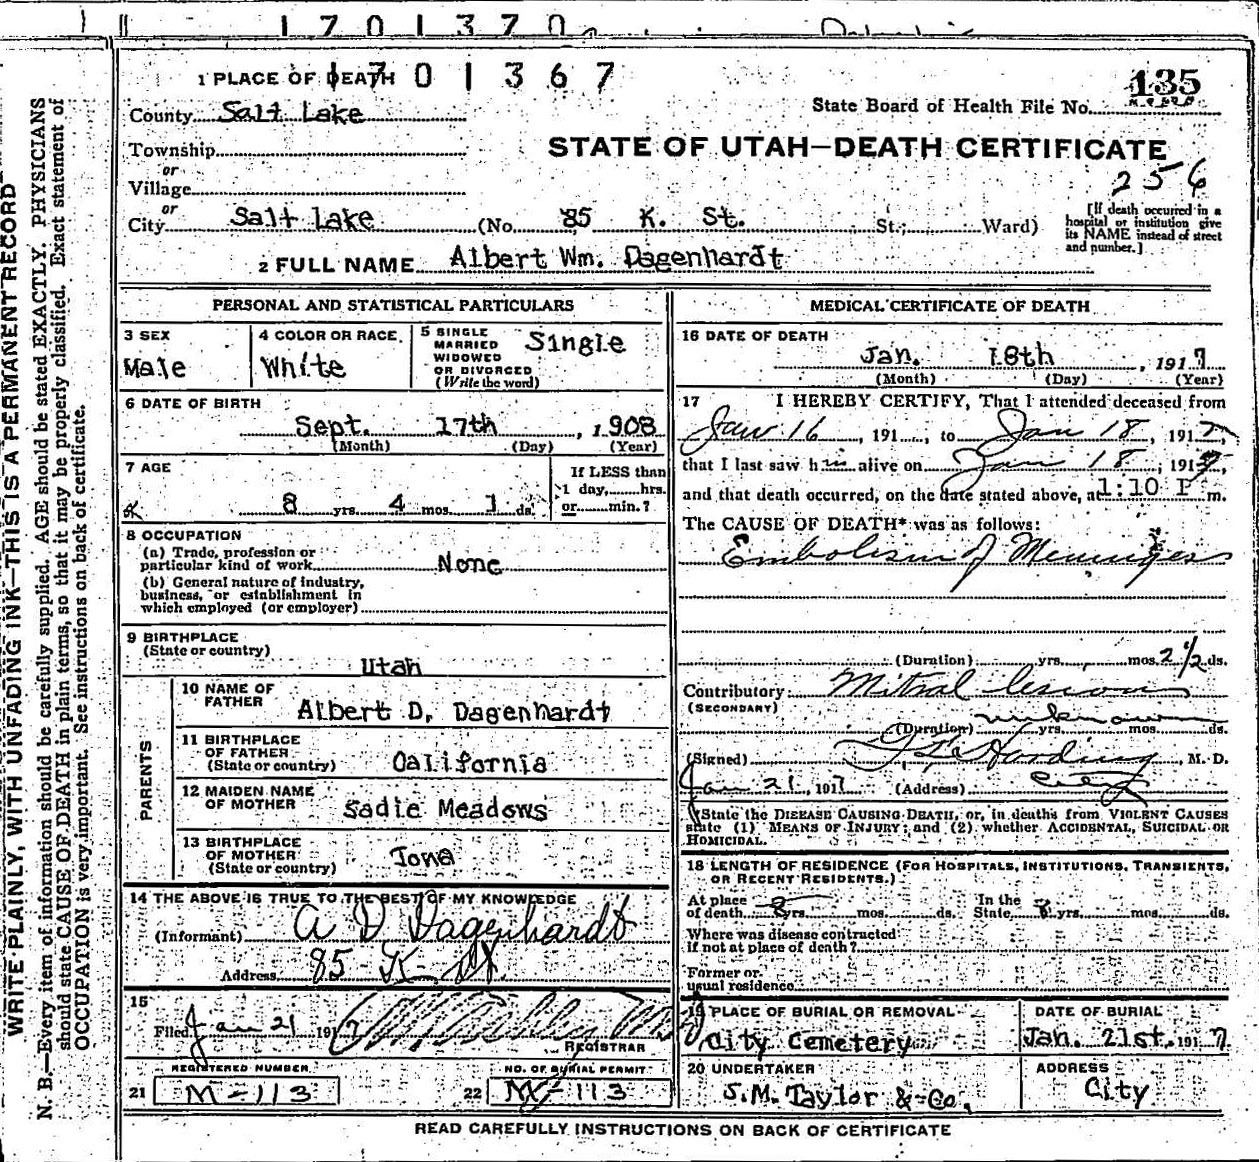 1701370
1 PLACE OF DEATH 1701367
135
County Salt Lake
State Board of Health File No.
Township
STATE OF UTAH—DEATH CERTIFICATE
or
Village
256
or
City Salt Lake (No. 85 K. St. St.; Ward)
[If death occurred in a hospital or institution give its NAME instead of street and number.]
2 FULL NAME Albert Wm. Dagenhardt
PERSONAL AND STATISTICAL PARTICULARS
3 SEX
Male
4 COLOR OR RACE
White
5 SINGLE
MARRIED
WIDOWED
OR DIVORCED
(Write the word)
Single
6 DATE OF BIRTH
Sept. 17th, 1908
(Month) (Day) (Year)
7 AGE
8 yrs. 4 mos. 1 ds.
If LESS than
1 day,......hrs.
or......min.?
8 OCCUPATION
(a) Trade, profession or
particular kind of work None
(b) General nature of industry,
business, or establishment in
which employed (or employer)
9 BIRTHPLACE
(State or country)
Utah
PARENTS
10 NAME OF
FATHER
Albert D. Dagenhardt
11 BIRTHPLACE
OF FATHER
(State or country) California
12 MAIDEN NAME
OF MOTHER
Sadie Meadows
13 BIRTHPLACE
OF MOTHER
(State or country)
Iona
14 THE ABOVE IS TRUE TO THE BEST OF MY KNOWLEDGE
(Informant) A D Dagenhardt
Address 85 K St.
15
Filed Jan 21 1917
REGISTRAR
REGISTERED NUMBER
21 M-113
NO. OF BURIAL PERMIT
22 M-113
MEDICAL CERTIFICATE OF DEATH
16 DATE OF DEATH
Jan. 18th, 1917
(Month) (Day) (Year)
17 I HEREBY CERTIFY, That I attended deceased from
Jan 16, 191...., to Jan 18, 1917,
that I last saw him alive on Jan 18, 1917,
and that death occurred, on the date stated above, at 1:10 P m.
The CAUSE OF DEATH* was as follows:
Embolism of Meninges
(Duration) yrs. mos. 2 1/2 ds.
Contributory Mitral lesion
(SECONDARY)
(Duration) unknown yrs. mos. ds.
(Signed) Harding, M. D.
Jan 21, 1917 (Address) City
*State the DISEASE CAUSING DEATH, or, in deaths from VIOLENT CAUSES
state (1) MEANS OF INJURY; and (2) whether ACCIDENTAL, SUICIDAL OR
HOMICIDAL.
18 LENGTH OF RESIDENCE (FOR HOSPITALS, INSTITUTIONS, TRANSIENTS,
OR RECENT RESIDENTS.)
At place
of death 8 yrs. mos. ds.
In the
State 8 yrs. mos. ds.
Where was disease contracted
if not at place of death?
Former or
usual residence
19 PLACE OF BURIAL OR REMOVAL
City Cemetery
DATE OF BURIAL
Jan. 21st. 1917
20 UNDERTAKER
S.M. Taylor & Co.
ADDRESS
City
READ CAREFULLY INSTRUCTIONS ON BACK OF CERTIFICATE
WRITE PLAINLY, WITH UNFADING INK—THIS IS A PERMANENT RECORD
N. B.—Every item of information should be carefully supplied. AGE should be stated EXACTLY. PHYSICIANS
should state CAUSE OF DEATH in plain terms, so that it may be properly classified. Exact statement of
OCCUPATION is very important. See instructions on back of certificate.